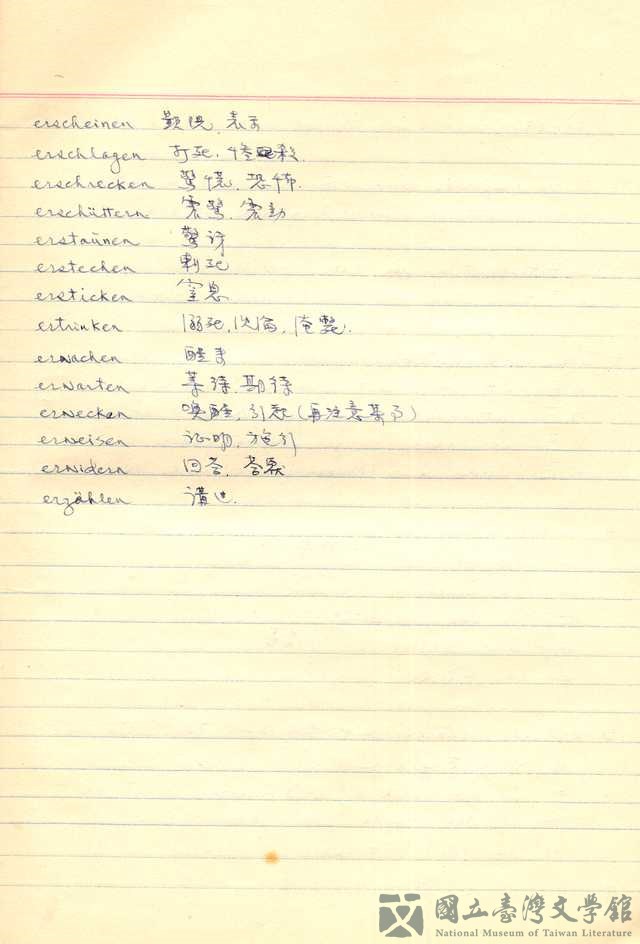 erscheinen 顯現, 表示
erschlagen 打死,
erschrecken 驚慌, 恐怖.
erschüttern 震驚, 震動
erstaunen 驚訝
erstechen 刺死
ersticken 窒息
ertrinken 溺死, 沈淪, 淹斃.
erwachen 醒來
erwarten 等待, 期待
erwecken 喚醒, 引起
erweisen 证明,
erwidern 回答, 答覆
erzählen 講述.
國立臺灣文學館
National Museum of Taiwan Literature